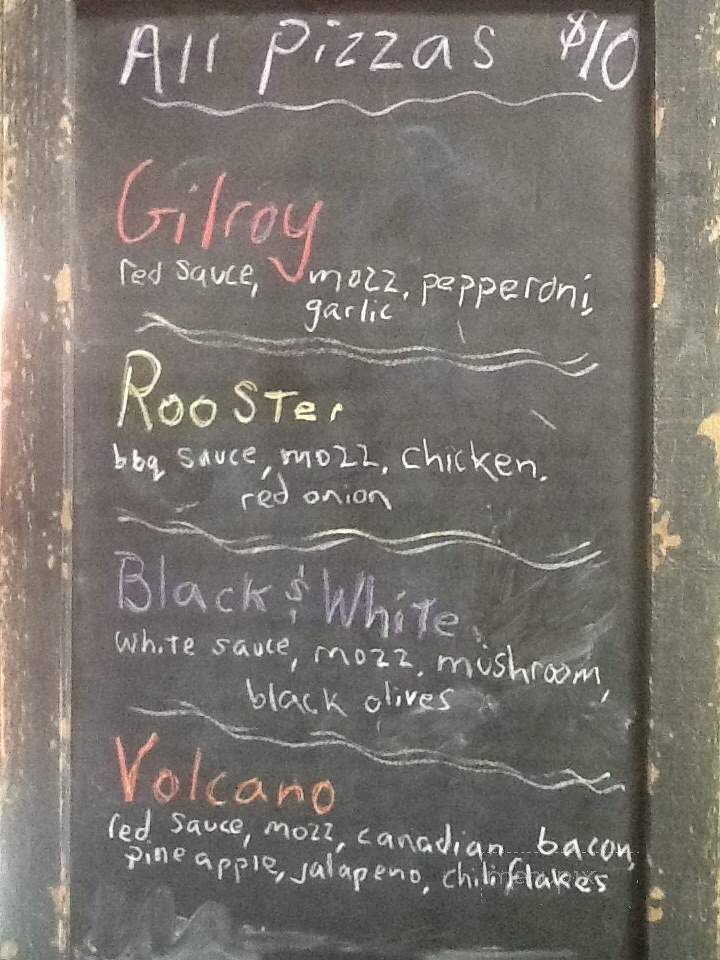 All Pizzas $10
Gilroy
red sauce, mozz, pepperoni,
garlic
Rooster
bbq sauce, mozz, chicken.
red onion
Black & White
white sauce, mozz, mushroom,
black olives
Volcano
red sauce, mozz, canadian bacon,
pineapple, jalapeno, chili flakes